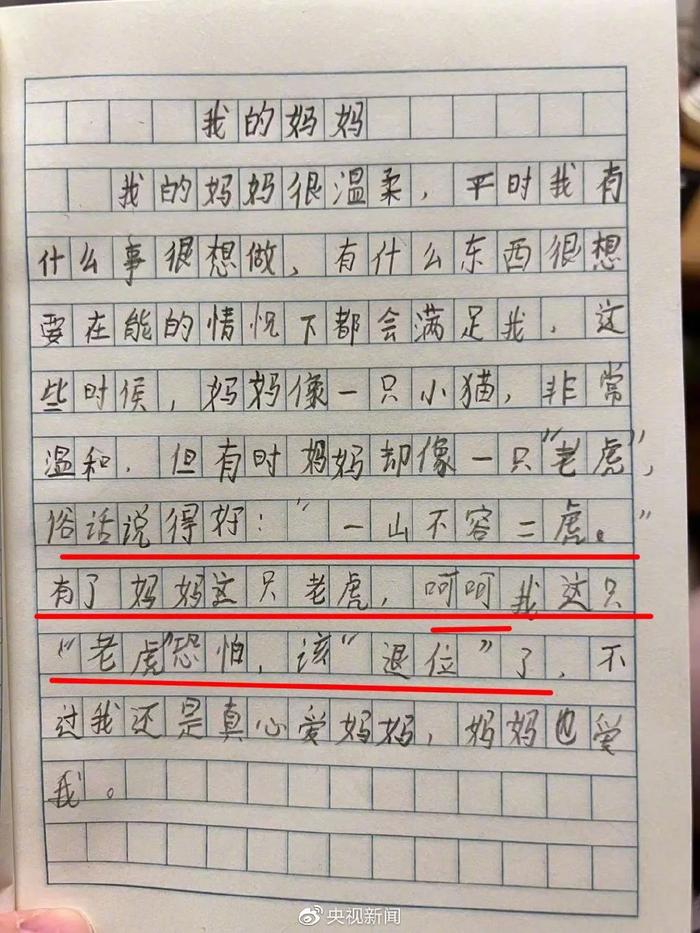 我的妈妈
我的妈妈很温柔，平时我有
什么事很想做、有什么东西很想
要在能的情况下都会满足我，这
些时候，妈妈像一只小猫，非常
温和，但有时妈妈却像一只"老虎"，
俗话说得好："一山不容二虎。"
有了妈妈这只老虎，呵呵我这只
"老虎"恐怕，该"退位"了，不
过我还是真心爱妈妈，妈妈也爱
我。
央视新闻